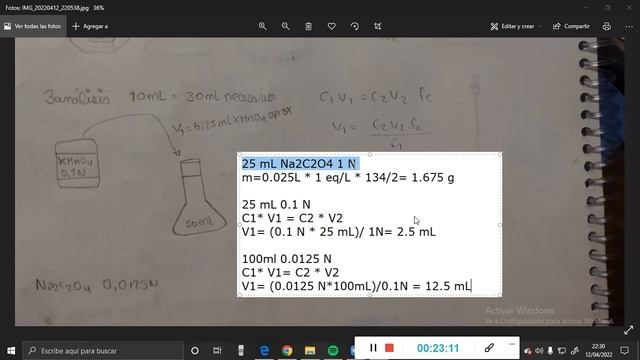 Fotos: IMG_20220412_220538.jpg 36%
Ver todas las fotos
Agregar a
Editar y crear
Compartir
3 análisis 10mL = 30mL necesarios
C1 V1 = C2 V2 fc
V1 = 6,25 mL KMnO4 aprox
V1 = C2.V2.fc
C1
KMnO4
0.1N
50mL
Na2C2O4 0,0125N
25 mL Na2C2O4 1 N
m=0.025L * 1 eq/L * 134/2= 1.675 g
25 mL 0.1 N
C1* V1 = C2 * V2
V1= (0.1 N * 25 mL)/ 1N= 2.5 mL
100ml 0.0125 N
C1* V1= C2 * V2
V1= (0.0125 N*100mL)/0.1N = 12.5 mL
Activar Windows
Ve a Configuración para activar Windows.
Escribe aquí para buscar
00:23:11
22:30
12/04/2022